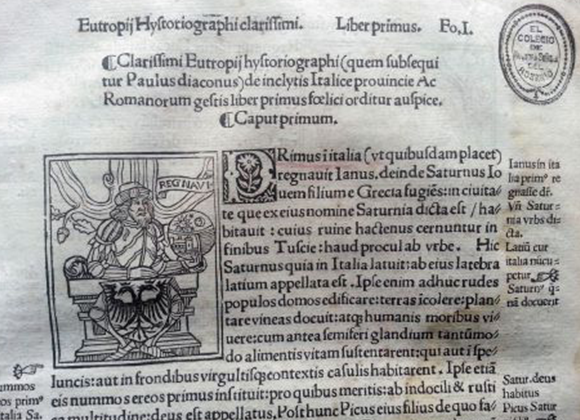 Eutropij Hystoriographi clarissimi. Liber primus. Fo.I.
EL
COLEGIO
DE
DEL
ROSARIO
⸿Clarissimi Eutropij hystoriographi (quem subsequi
tur Paulus diaconus) de inclytis Italice prouincie Ac
Romanorum gestis liber primus fœlici orditur auspice.
⸿Caput primum.
REGNAVI
PRimus i italia (vt quibusdam placet)
regnauit Ianus. deinde Saturnus Io
uem filium e Grecia fugiẽs: in ciuita/
te que ex eius nomine Saturnia dicta est / ha/
bitauit : cuius ruine hactenus cernuntur in
finibus Tuscie: haud procul ab vrbe. Hic
Saturnus quia in Italia latuit: ab eius latebra
latium appellata est. Ipse enim adhuc rudes
populos domos edificare: terras icolere: plan/
tare vineas docuit: atq; humanis moribus vi/
uere: cum antea semiferi glandium tantũmo/
do alimentis vitam sustentarent: qui aut i spe/
luncis: aut in frondibus virgultisq; contextis casulis habitarent. Ipse etiã
eis nummos ereos primus instituit: pro quibus meritis: ab indocili & rusti
ca multitudine: deus est appellatus. Post hunc Picus eius filius de quo fa/
Ianus in ita
lia primꝰ re
gnasse dr̃.
Vñ Satur=
nia vrbs di=
cta.
Latiũ cur
italia nũcu=
petur
Saturnꝰ q=
nã docuerit
Satur. deus
habitus
Picus Satur
ummos
os primꝰ
italia Sa.